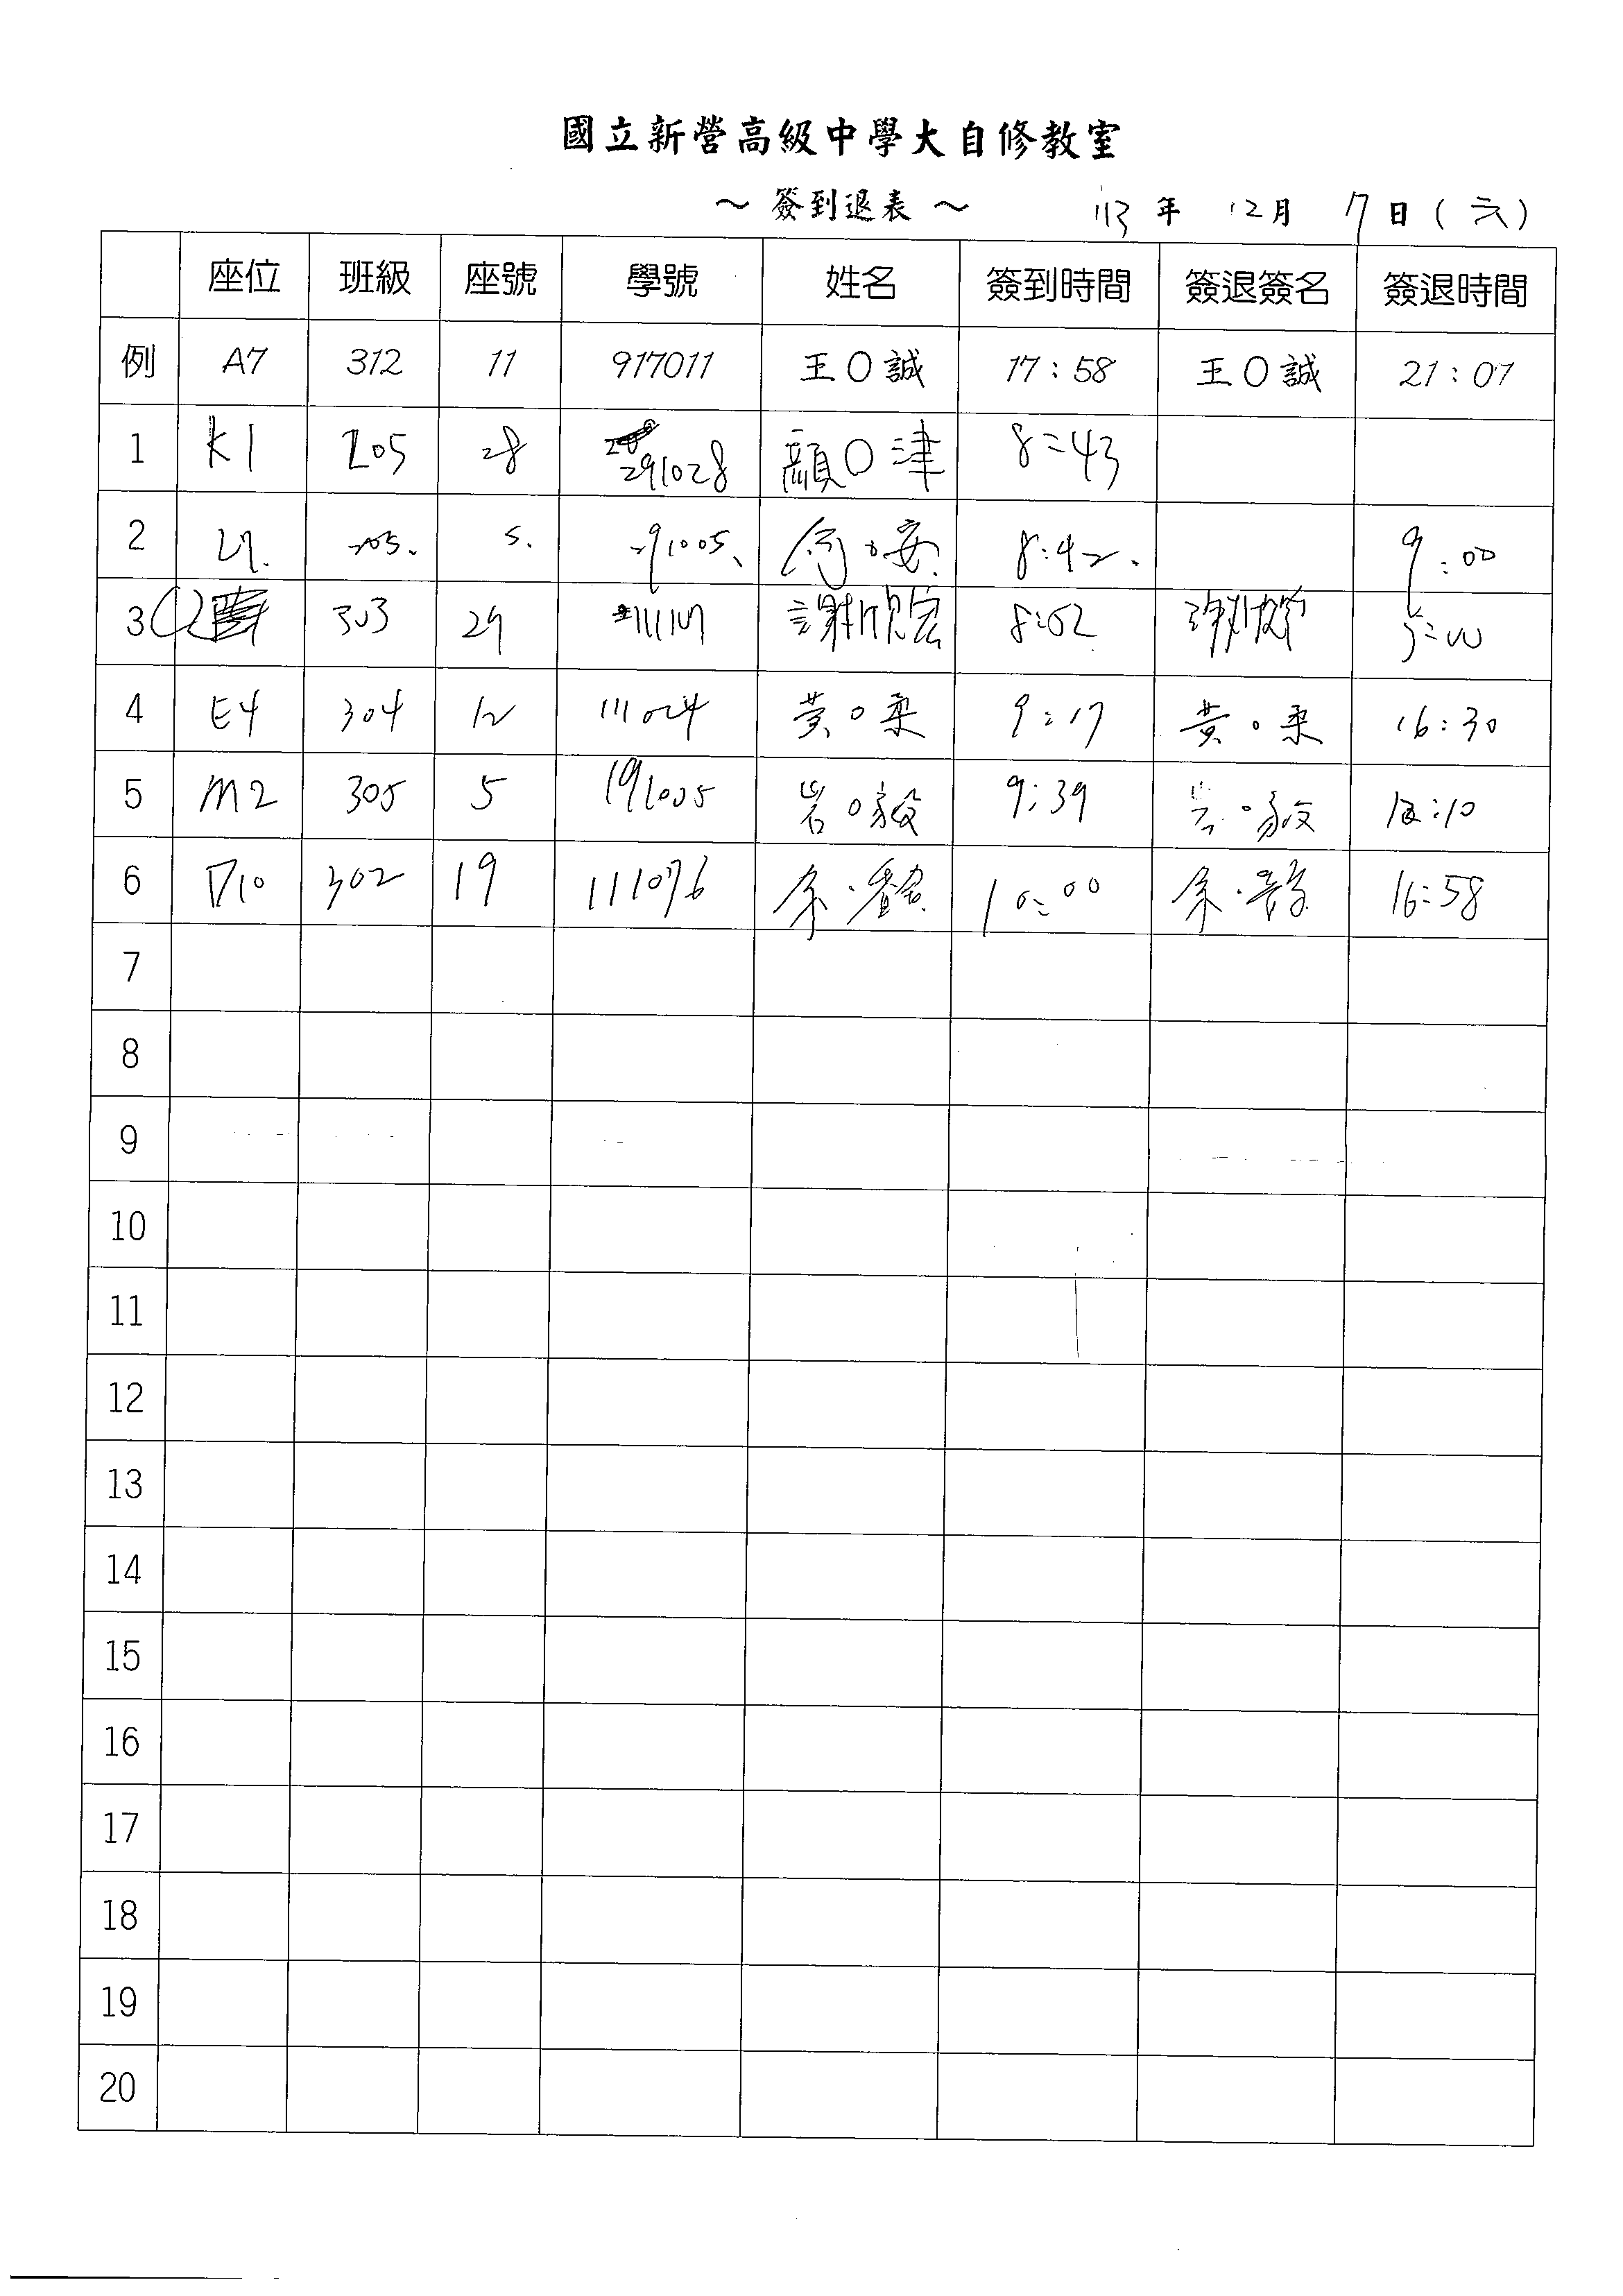 國立新營高級中學大自修教室
～ 簽到退表 ～ 113 年 12 月 7 日 ( 六 )
座位 班級 座號 學號 姓名 簽到時間 簽退簽名 簽退時間
例 A7 312 11 917011 王O誠 17:58 王O誠 21:07
1 K1 205 28 291028 顏O津 8:43
2 205. 5. 291005、 何O安 8:42. 9:00
3 303 29 謝 8:52 謝
4 E4 304 12 111024 黃O柔 9:17 黃O柔 16:30
5 M2 305 5 191005 岩O毅 9:39 岩O毅
6 D10 302 19 111076 余 10:00 余 16:58
7
8
9
10
11
12
13
14
15
16
17
18
19
20